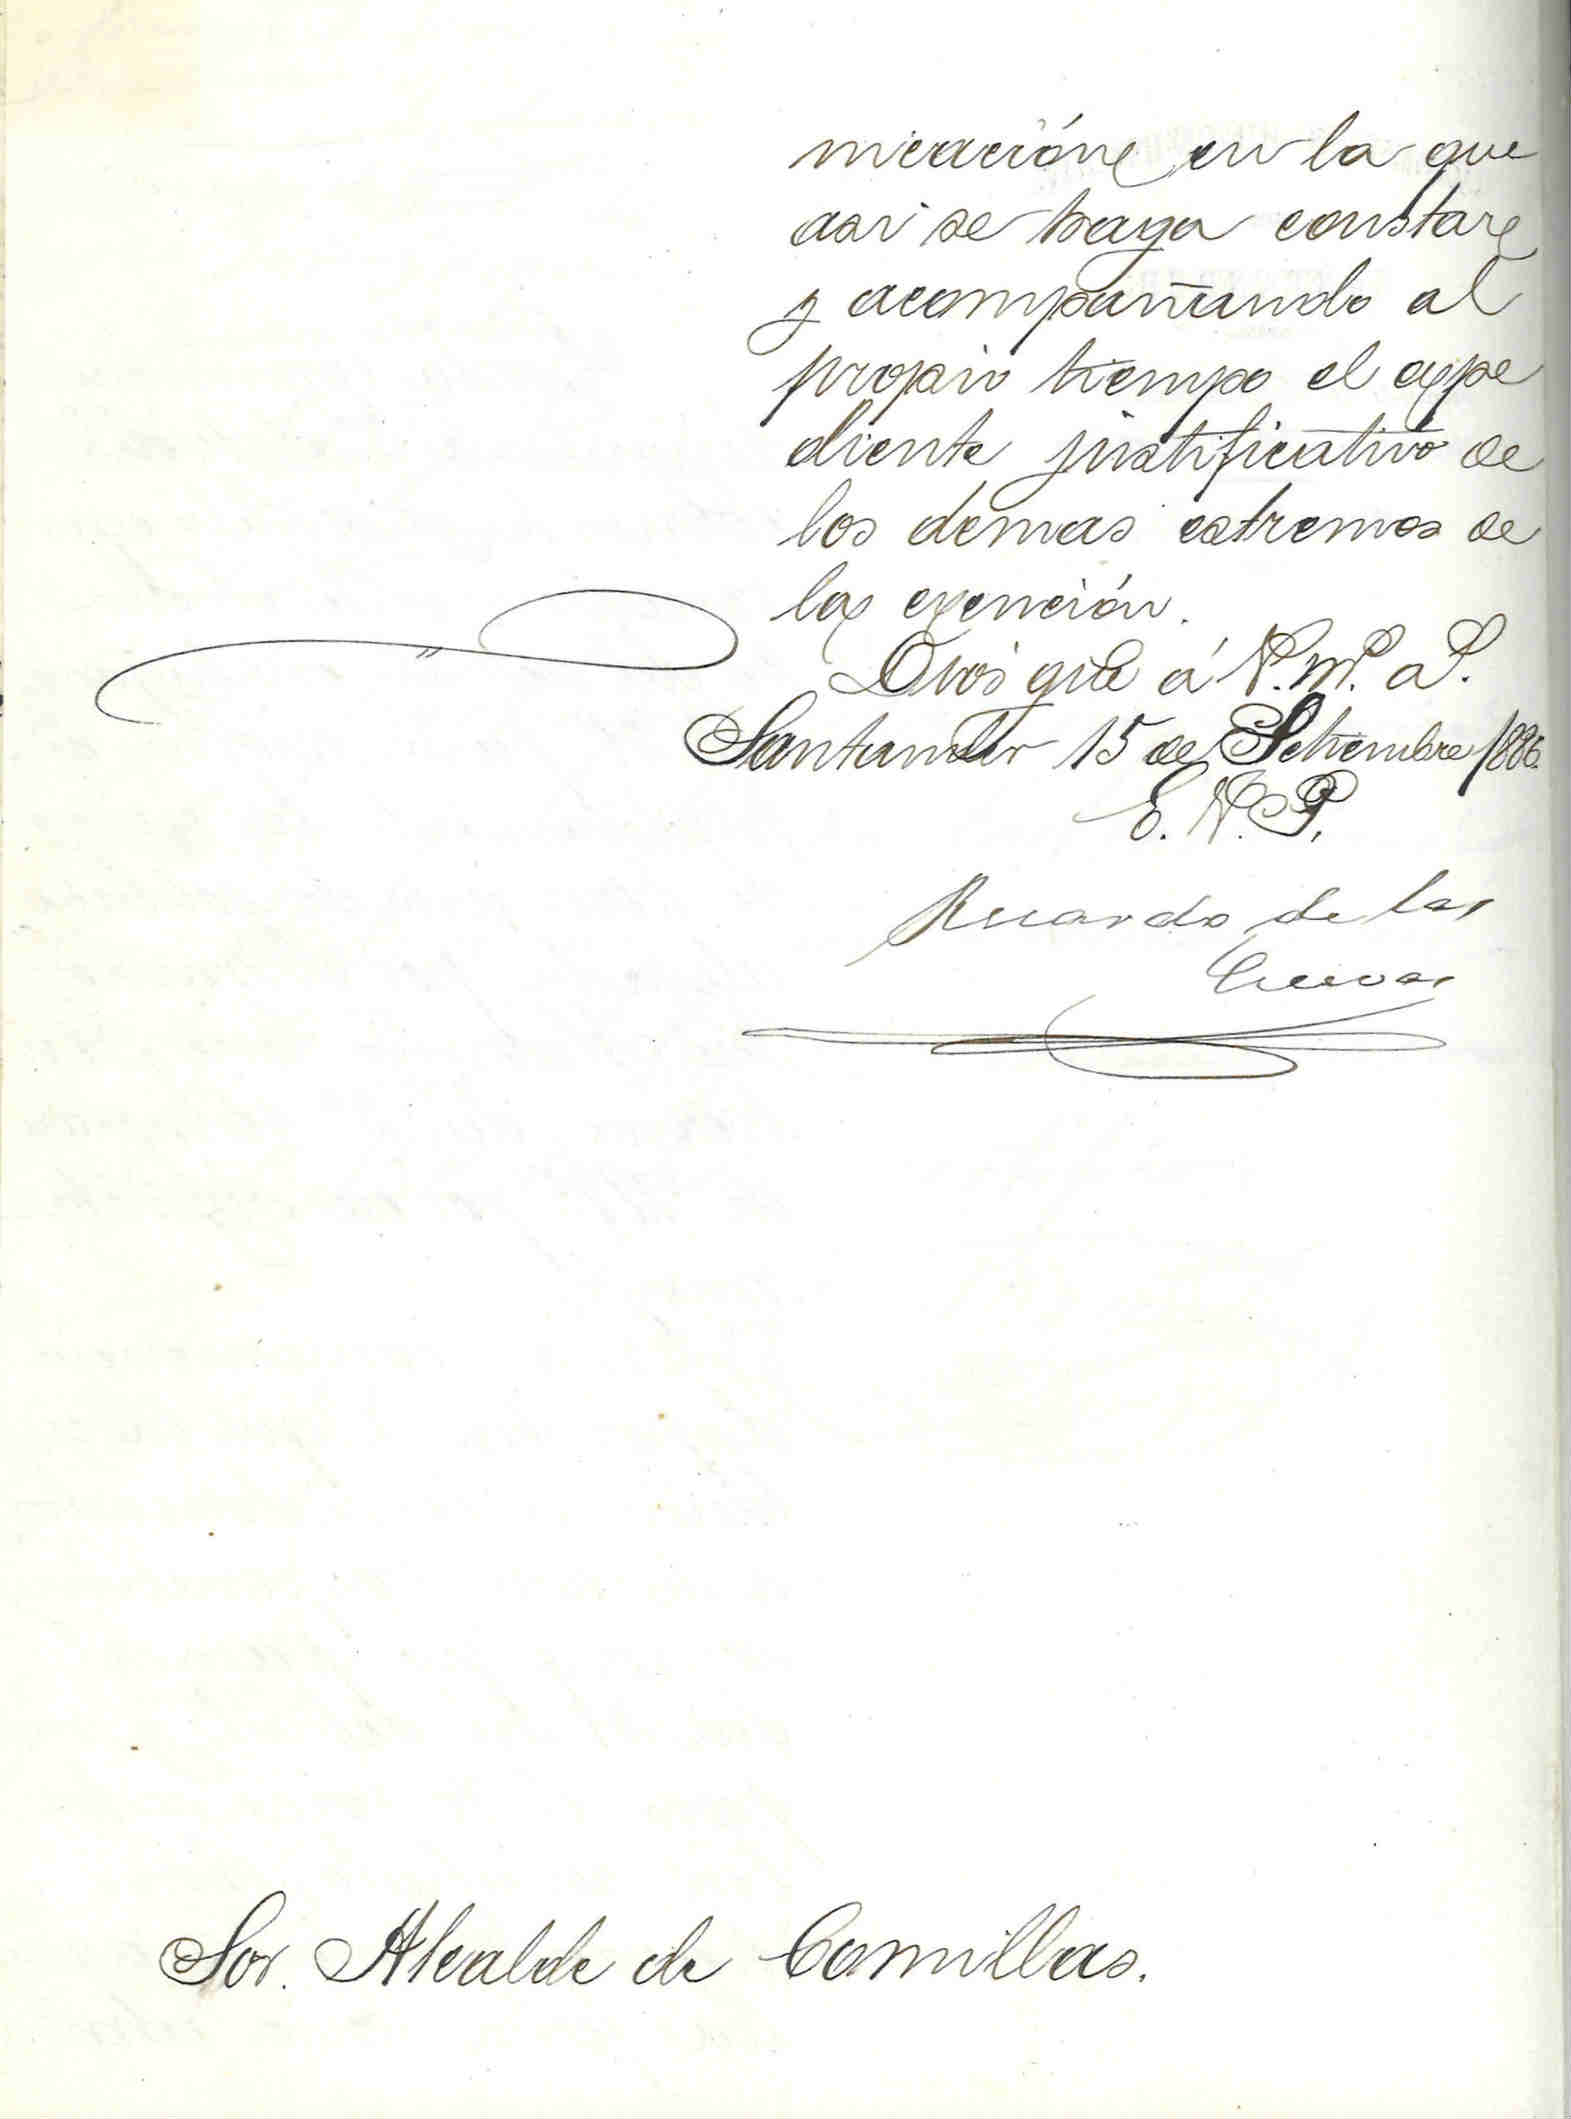 nicación en la que
asi se haga constar
y acompañando al
propio tiempo el expe
diente justificativo de
los demas estremos de
la exención.
Dios gue á V. m. a S.
Santander 15 de Setiembre 1886.
E. V. P.
Ricardo de las
Cuevas
Sor. Alcalde de Comillas.